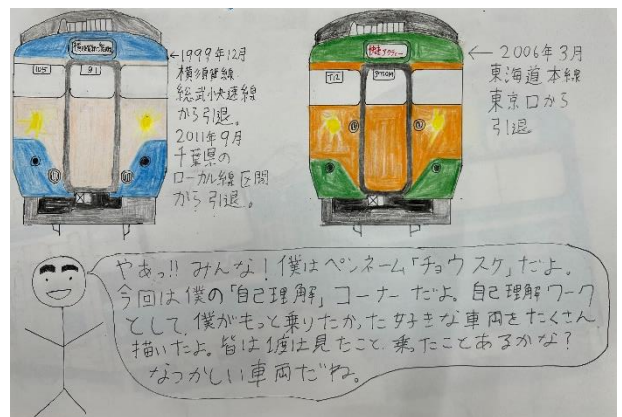 105
←1999年12月
横須賀線
総武快速線
から引退。
2011年9月
千葉県の
ローカル線区間
から引退。
快速アクティー
T12
← 2006年3月
東海道本線
東京口から
引退
やぁっ!! みんな！僕はペンネーム「チョウスケ」だよ。
今回は僕の「自己理解」コーナーだよ。自己理解ワーク
として、僕がもっと乗りたかった好きな車両をたくさん
描いたよ。皆は1度は見たこと、乗ったことあるかな？
なつかしい車両だね。